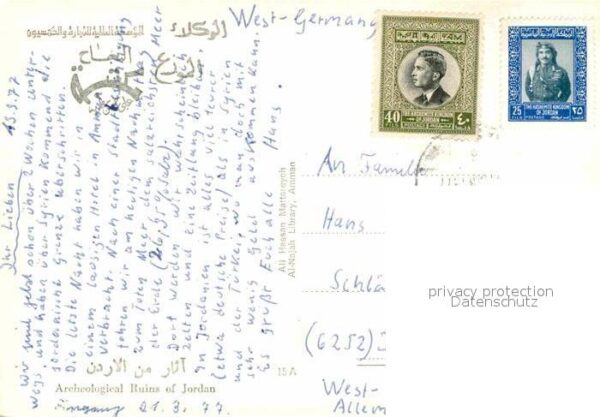 West-Germany
الوكلاء
15.3.77
Ihr Lieben
Wir sind jetzt schon über 2 Wochen unter-
wegs, und haben über Syrien kommend die
jordanische Grenze überschritten.
Die letzte Nacht haben wir in
einem lausigen Hotel in Amman
verbracht. Nach einer Stadt
fahren wir am heutigen Nach
zum Toten Meer, dem salzreichsten Meer
der Erde
Dort werden wir wahrscheinlich
zelten und eine Zeitlang bleiben.
In Jordanien ist alles viel teurer
(etwa deutsche Preise) als in Syrien
und der Türkei, wo man doch mit
sehr wenig Geld auskommen kann.
Es grüßt Euch alle Hans.
آثار من الاردن
15 A
Archeological Ruins of Jordan
Eingang 21.3.77
Ali Hassan
Al-Najah Library, Amman
40
FILS
THE HASHEMITE KINGDOM
OF JORDAN
٤٠
25
FILS
POSTAGE
THE HASHEMITE KINGDOM
OF JORDAN
٢٥
An Famili
Hans
Schlä
(6252)
West-
Allem
privacy protection
Datenschutz